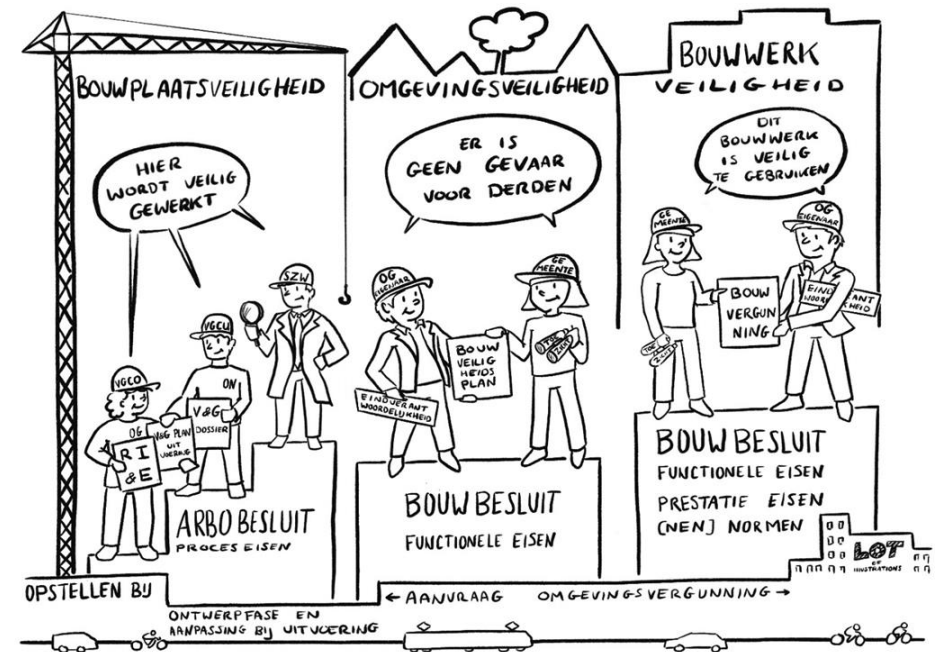 BOUWPLAATSVEILIGHEID
HIER
WORDT VEILIG
GEWERKT
SZW
VGCU
VGCO
ON
OG
RI
&E
V&G PLAN
UIT
VOERING
V&G
DOSSIER
ARBO BESLUIT
PROCES EISEN
OMGEVINGSVEILIGHEID
ER IS
GEEN GEVAAR
VOOR DERDEN
OG
EIGENAAR
GE
MEENTE
BOUW
VEILIG
HEIDS
PLAN
TOE
ZICHT
EINDVERANT
WOORDELIJKHEID
BOUWBESLUIT
FUNCTIONELE EISEN
BOUWWERK
VEILIGHEID
DIT
BOUWWERK
IS VEILIG
TE GEBRUIKEN
GE
MEENTE
OG
EIGENAAR
BOUW
VERGUN
NING
EIND
WOOR
ANT
KHEID
TOE
ZICHT
BOUWBESLUIT
FUNCTIONELE EISEN
PRESTATIE EISEN
(NEN) NORMEN
LOT
OF
ILLUSTRATIONS
OPSTELLEN BIJ
ONTWERPFASE EN
AANPASSING BIJ UITVOERING
← AANVRAAG OMGEVINGSVERGUNNING →